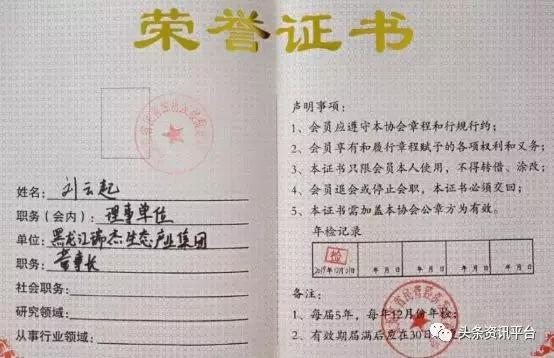 荣誉证书
姓名：刘云起
职务（会内）：理事单位
单位：黑龙江瑞杰生态产业集团
职务：董事长
社会职务：
研究领域：
从事行业领域：
声明事项：
1、会员应遵守本协会章程和行规行约；
2、会员享有和履行章程赋予的各项权利和义务；
3、本证书只限会员本人使用，不得转借、涂改；
4、会员退会或停止会职，本证书必须交回；
5、本证书需加盖本协会公章方为有效。
年检记录
检
年 月 日 年 月 日 年 月 日
备注：
1、每届5年，每年12月份年检；
2、有效期届满后应在30日
头条资讯平台